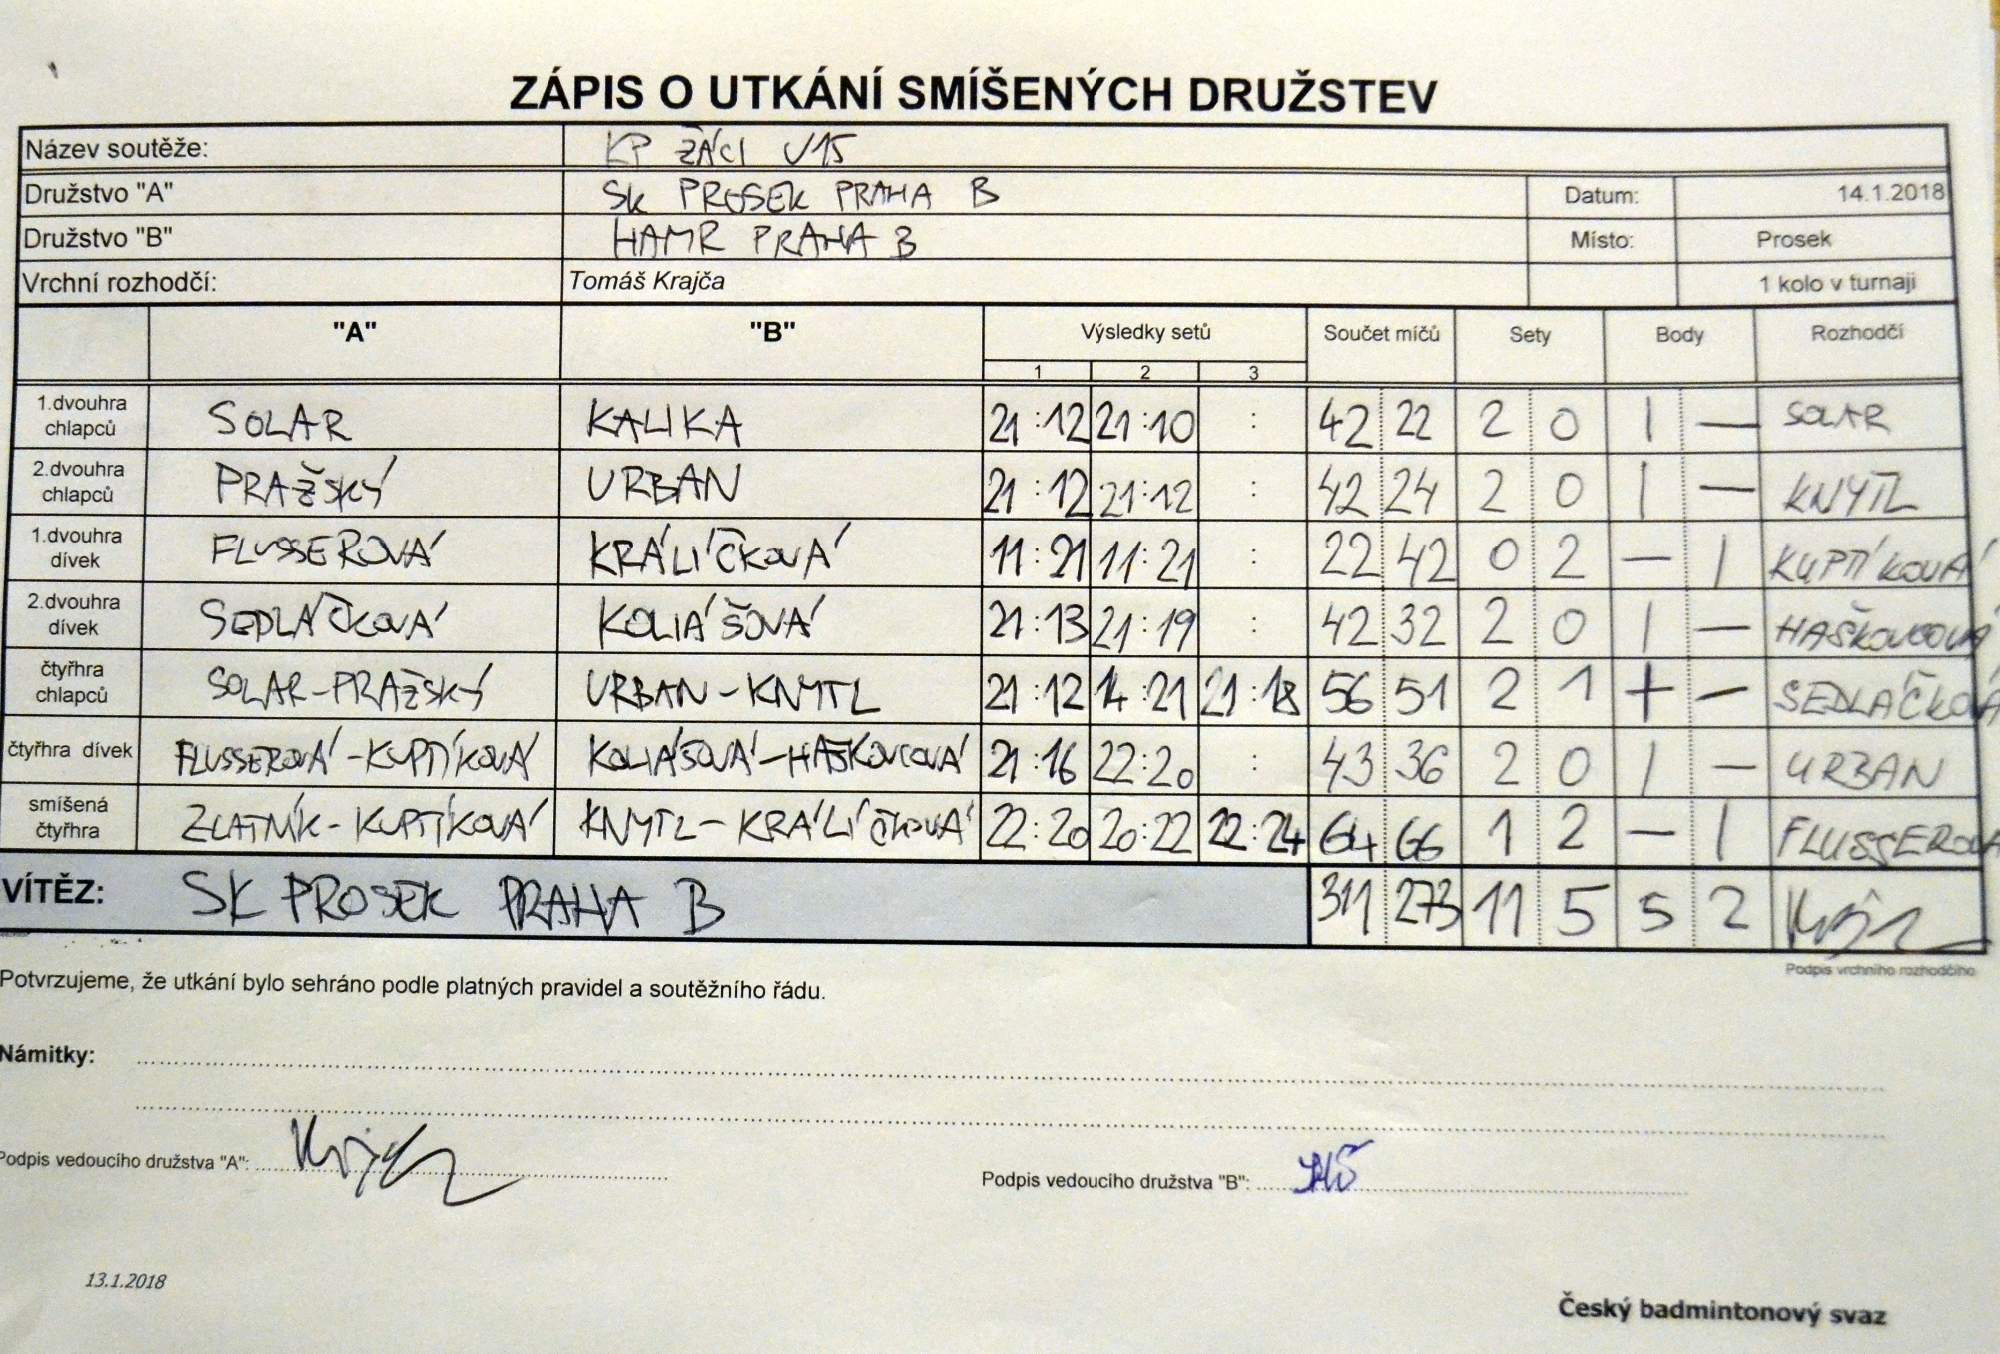 ZÁPIS O UTKÁNÍ SMÍŠENÝCH DRUŽSTEV
Název soutěže: KP ŽÁCI U15
Družstvo "A" SK PROSEK PRAHA B Datum: 14.1.2018
Družstvo "B" HAMR PRAHA B Místo: Prosek
Vrchní rozhodčí: Tomáš Krajča 1 kolo v turnaji
"A" "B" Výsledky setů Součet míčů Sety Body Rozhodčí
1 2 3
1.dvouhra chlapců SOLAR KALIKA 21:12 21:10 : 42 22 2 0 1 — SOLAR
2.dvouhra chlapců PRAŽSKÝ URBAN 21:12 21:12 : 42 24 2 0 1 — KNYTL
1.dvouhra dívek FLUSSEROVÁ KRÁLÍČKOVÁ 11:21 11:21 : 22 42 0 2 — 1 KUPTÍKOVÁ
2.dvouhra dívek SEDLÁČKOVÁ KOLIÁŠOVÁ 21:13 21:19 : 42 32 2 0 1 — HAŠKOVCOVÁ
čtyřhra chlapců SOLAR-PRAŽSKÝ URBAN-KNYTL 21:12 14:21 21:18 56 51 2 1 + — SEDLÁČKOVÁ
čtyřhra dívek FLUSSEROVÁ-KUPTÍKOVÁ KOLIÁŠOVÁ-HAŠKOVCOVÁ 21:16 22:20 : 43 36 2 0 1 — URBAN
smíšená čtyřhra ZLATNÍK-KUPTÍKOVÁ KNYTL-KRÁLÍČKOVÁ 22:20 20:22 22:24 64 66 1 2 — 1 FLUSSEROVÁ
VÍTĚZ: SK PROSEK PRAHA B 311 273 11 5 5 2
Podpis vrchního rozhodčího
Potvrzujeme, že utkání bylo sehráno podle platných pravidel a soutěžního řádu.
Námitky:
Podpis vedoucího družstva "A": Podpis vedoucího družstva "B":
13.1.2018
Český badmintonový svaz